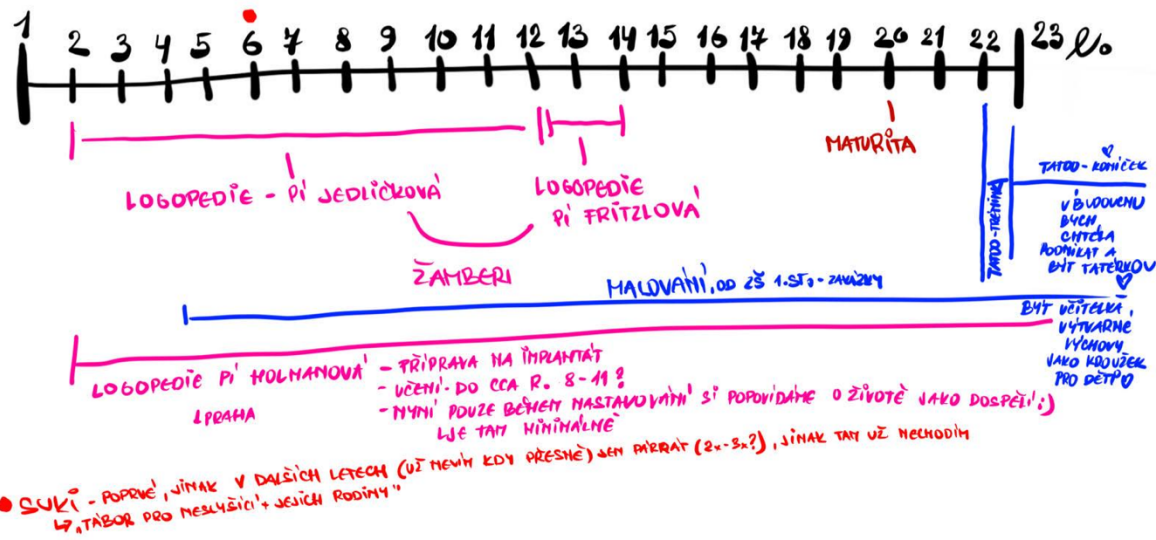 1 2 3 4 5 6 7 8 9 10 11 12 13 14 15 16 17 18 19 20 21 22 23 l.
MATURITA
LOGOPEDIE - PÍ JEDLIČKOVÁ
LOGOPEDIE
PÍ FRITZLOVÁ
ŽAMBERI
TATOO-TRÉNINK
TATOO-KONÍČEK
V BUDOUCNU
BYCH
CHTĚLA
PODNIKAT A
BÝT TATÉRKOU
MALOVÁNÍ, OD ZŠ 1.ST.- ZAKÁZKY
BÝT UČITELKA,
VÝTVARNÉ
VÝCHOVY
JAKO KROUŽEK
PRO DĚTI
LOGOPEDIE PÍ HOLMANOVÁ - PŘÍPRAVA NA IMPLANTÁT
PRAHA
- UČENÍ- DO CCA R. 8-11?
- NYNÍ POUZE BĚHEM NASTAVOVÁNÍ SI POPOVÍDÁME O ŽIVOTĚ JAKO DOSPĚLÍ :)
JE TAM MINIMÁLNĚ
SUKI - POPRVÉ, JINAK V DALŠÍCH LETECH (UŽ NEVÍM KDY PŘESNĚ) JEN PÁRKRÁT (2x-3x?), JINAK TAM UŽ NECHODÍM
"TÁBOR PRO NESLYŠÍCÍ + JEJICH RODINY"